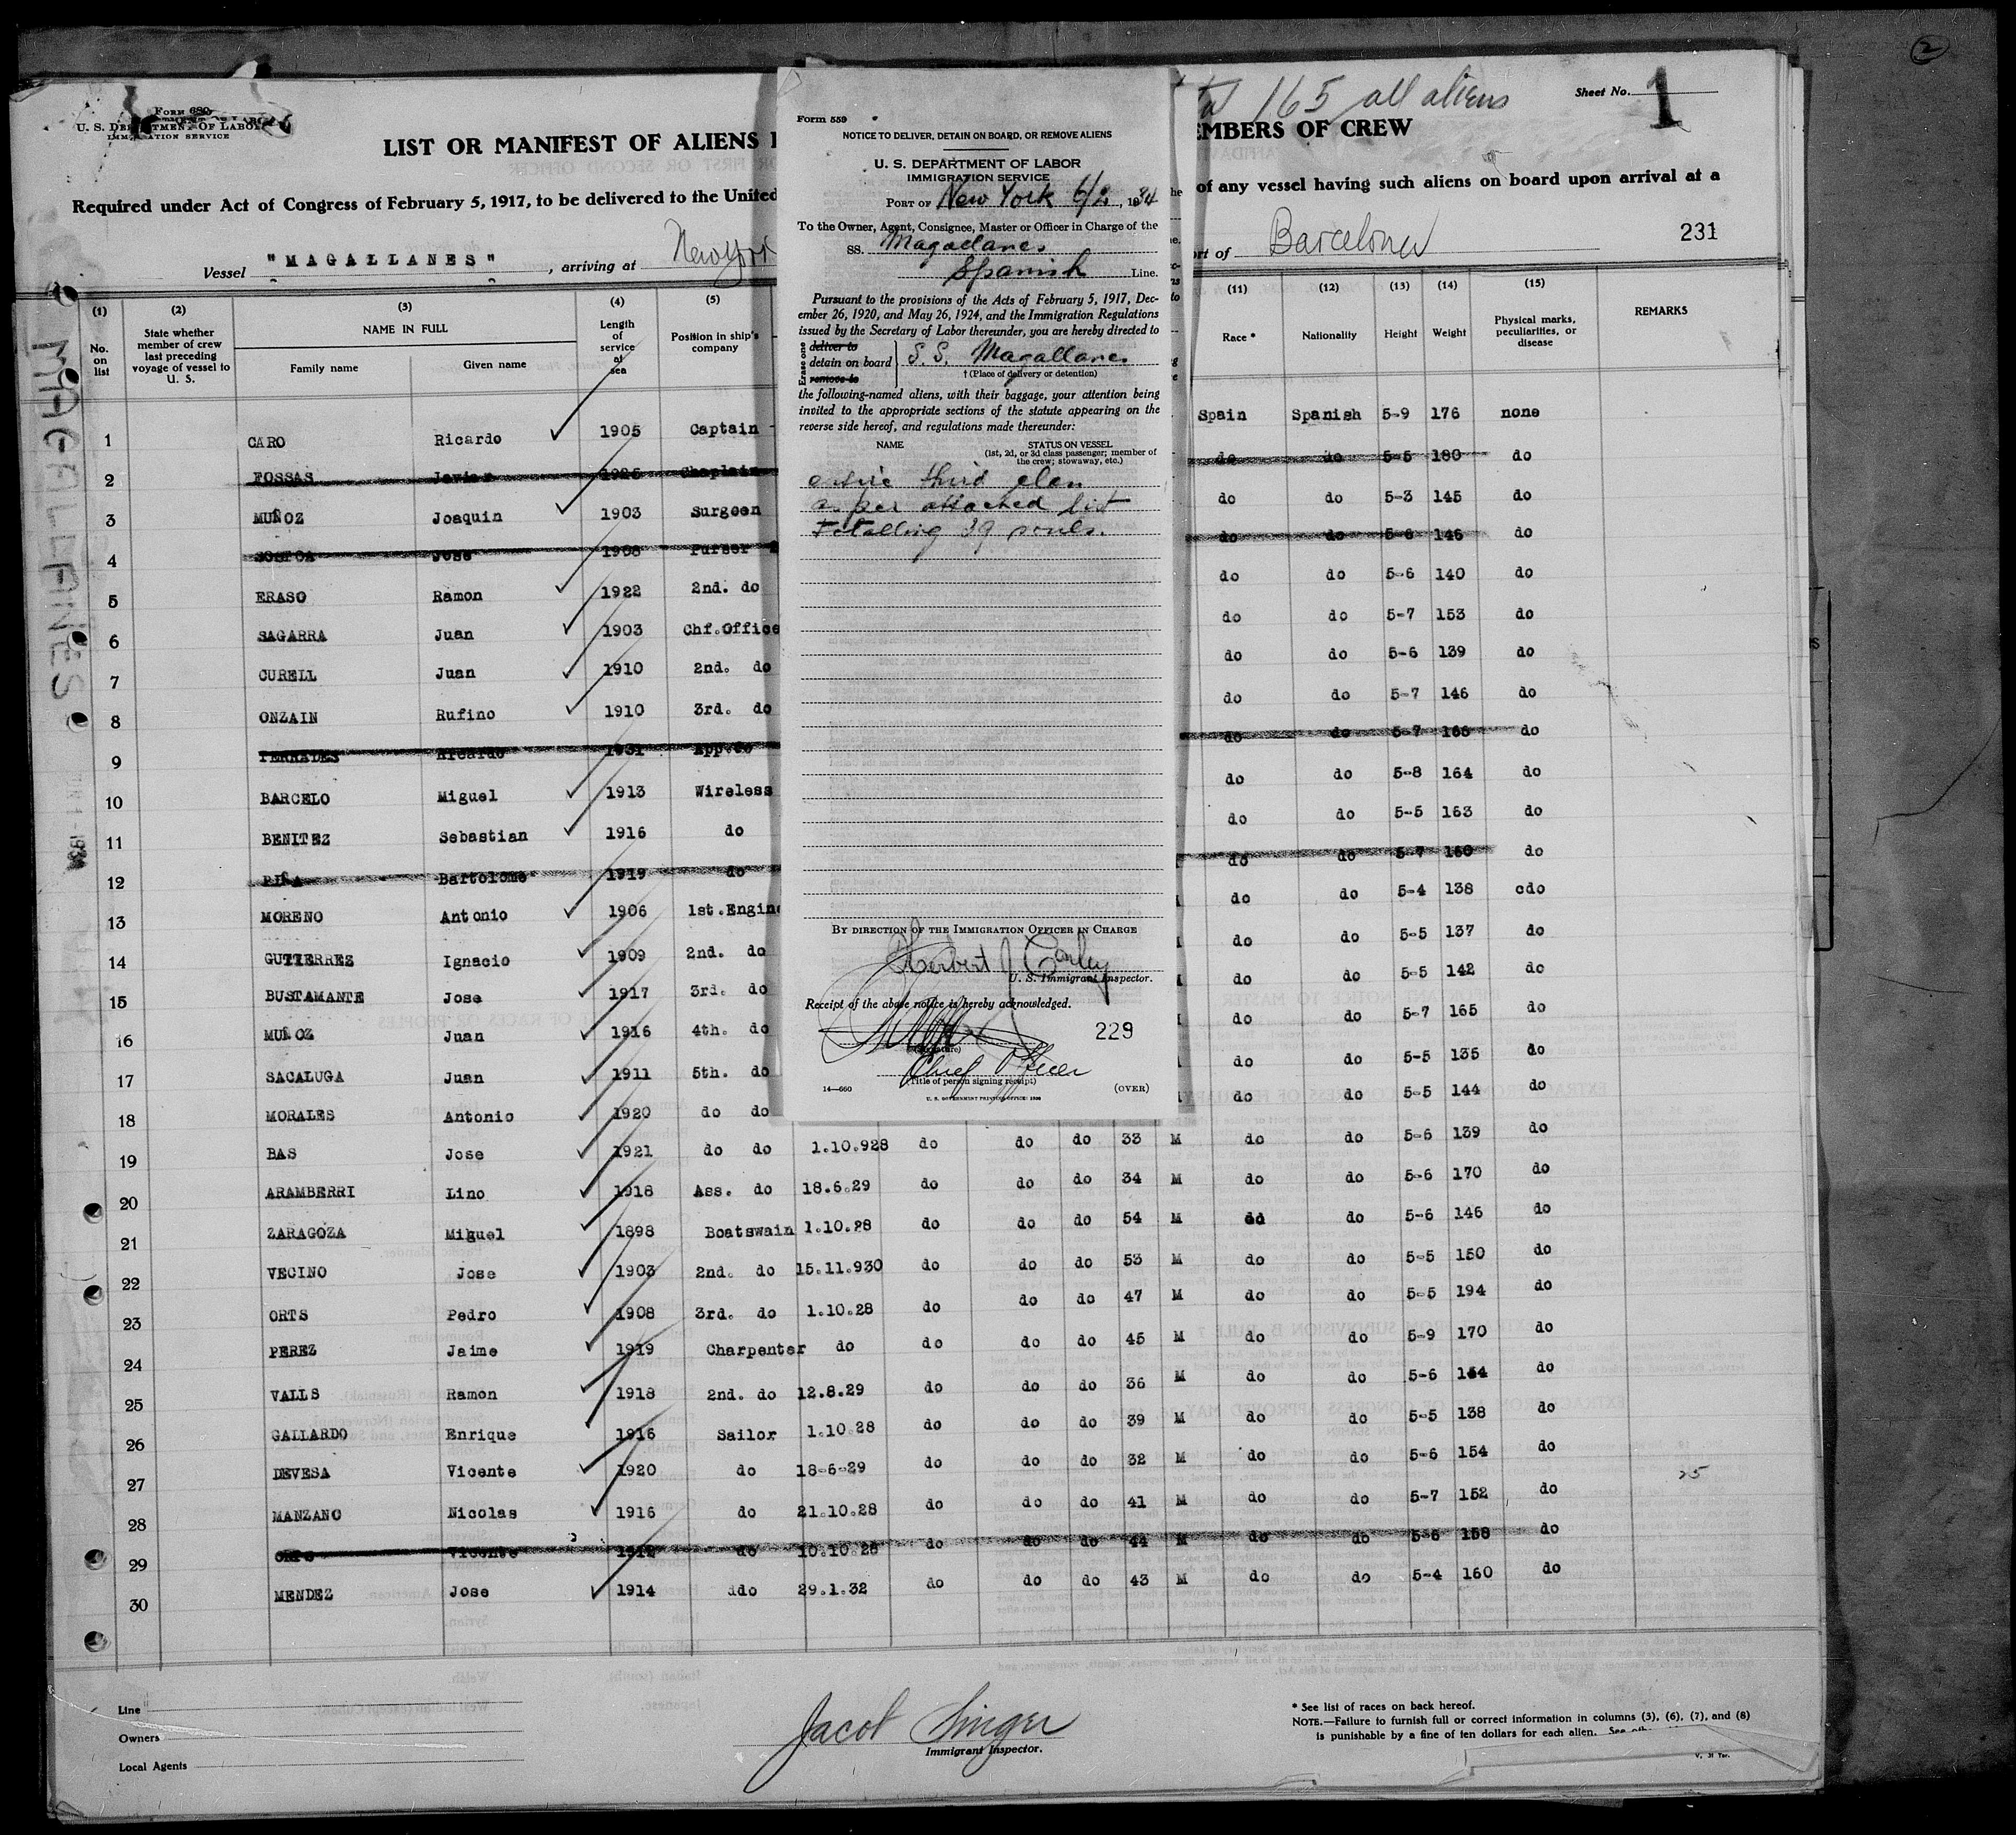 2
Form 680
U. S. DEPARTMENT OF LABOR
IMMIGRATION SERVICE
165 all aliens
Sheet No. 1
LIST OR MANIFEST OF ALIENS
EMBERS OF CREW
Required under Act of Congress of February 5, 1917, to be delivered to the United
of any vessel having such aliens on board upon arrival at a
Vessel "MAGALLANES", arriving at New York
rt of Barcelona
231
MAGALLANES
(1) (2) (3) (4) (5) (11) (12) (13) (14) (15)
No. on list
State whether member of crew last preceding voyage of vessel to U. S.
NAME IN FULL
Family name Given name
Length of service at sea
Position in ship's company
Race * Nationality Height Weight Physical marks, peculiarities, or disease REMARKS
1 CARO Ricardo 1905 Captain Spain Spanish 5-9 176 none
2 FOSSAS Javier 1926 Chaplain do do 5-5 180 do
3 MUÑOZ Joaquin 1903 Surgeon do do 5-3 145 do
4 Jose 1908 Purser do do 5-6 146 do
5 ERASO Ramon 1922 2nd. do do do 5-6 140 do
6 SAGARRA Juan 1903 Chf.Office do do 5-7 153 do
7 CURELL Juan 1910 2nd. do do do 5-6 139 do
8 ONZAIN Rufino 1910 3rd. do do do 5-7 146 do
9 TERRADES Ricardo 1931 App.do do do 5-7 166 do
10 BARCELO Miguel 1913 Wireless do do 5-8 164 do
11 BENITEZ Sebastian 1916 do do do 5-5 163 do
12 PIÑA Bartolome 1919 do do do 5-7 160 do
13 MORENO Antonio 1906 1st.Engin do do 5-4 138 cdo
14 GUTIERREZ Ignacio 1909 2nd. do do do 5-5 137 do
15 BUSTAMANTE Jose 1917 3rd. do do do 5-5 142 do
16 MUÑOZ Juan 1916 4th. do do do 5-7 165 do
17 SACALUGA Juan 1911 5th. do do do 5-5 135 do
18 MORALES Antonio 1920 do do do do 5-5 144 do
19 BAS Jose 1921 do do 1.10.928 do do do 33 M do do 5-6 139 do
20 ARAMBERRI Lino 1918 Ass. do 18.6.29 do do do 34 M do do 5-6 170 do
21 ZARAGOZA Miguel 1898 Boatswain 1.10.28 do do do 54 M do do 5-6 146 do
22 VECINO Jose 1903 2nd. do 15.11.930 do do do 53 M do do 5-5 150 do
23 ORTS Pedro 1908 3rd. do 1.10.28 do do do 47 M do do 5-5 194 do
24 PEREZ Jaime 1919 Charpenter do do do do 45 M do do 5-9 170 do
25 VALLS Ramon 1918 2nd. do 12.8.29 do do do 36 M do do 5-6 do
26 GALLARDO Enrique 1916 Sailor 1.10.28 do do do 39 M do do 5-5 138 do
27 DEVESA Vicente 1920 do 18-6-29 do do do 32 M do do 5-6 154 do
28 MANZANO Nicolas 1916 do 21.10.28 do do do 41 M do do 5-7 152 do
29 ORTS Vicente do 10.10.28 do do do 44 M do do 5-6 158 do
30 MENDEZ Jose 1914 ddo 29.1.32 do do do 43 M do do 5-4 160 do
25
Form 559
NOTICE TO DELIVER, DETAIN ON BOARD, OR REMOVE ALIENS
U. S. DEPARTMENT OF LABOR
IMMIGRATION SERVICE
PORT OF New York 6/2, 1934
To the Owner, Agent, Consignee, Master or Officer in Charge of the
SS. Magaclanes
Spanish Line.
Pursuant to the provisions of the Acts of February 5, 1917, Dec-
ember 26, 1920, and May 26, 1924, and the Immigration Regulations
issued by the Secretary of Labor thereunder, you are hereby directed to
Erase one
deliver to
detain on board
remove to
S.S. Magallanes
† (Place of delivery or detention)
the following-named aliens, with their baggage, your attention being
invited to the appropriate sections of the statute appearing on the
reverse side hereof, and regulations made thereunder:
NAME STATUS ON VESSEL
(1st, 2d, or 3d class passenger; member of
the crew; stowaway, etc.)
entire third class
as per attached list
totalling 39 souls.
BY DIRECTION OF THE IMMIGRATION OFFICER IN CHARGE
Herbert J Conley
U. S. Immigrant Inspector.
Receipt of the above notice is hereby acknowledged.
229
(Signature)
Chief Officer
(Title of person signing receipt)
14—660 (OVER)
U. S. GOVERNMENT PRINTING OFFICE: 1930
Line
Owners
Local Agents
Jacob Singer
Immigrant Inspector.
* See list of races on back hereof.
NOTE.—Failure to furnish full or correct information in columns (3), (6), (7), and (8)
is punishable by a fine of ten dollars for each alien.